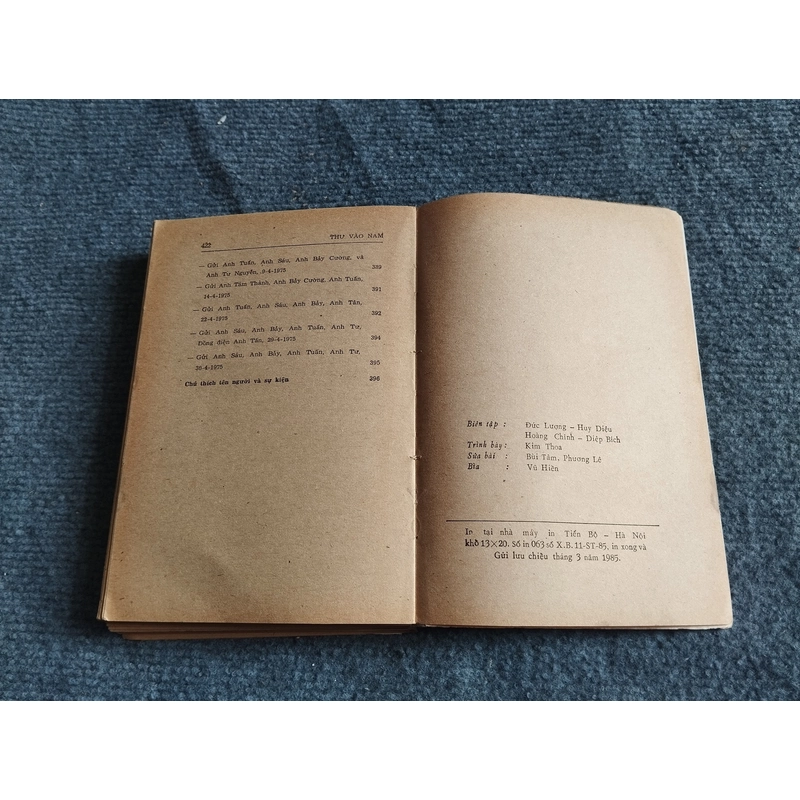 422
THƯ VÀO NAM
— Gửi Anh Tuấn, Anh Sáu, Anh Bảy Cường, và
Anh Tư Nguyễn, 9-4-1975 389
— Gửi Anh Tám Thành, Anh Bảy Cường, Anh Tuấn,
14-4-1975 391
— Gửi Anh Tuấn, Anh Sáu, Anh Bảy, Anh Tân,
22-4-1975 392
— Gửi Anh Sáu, Anh Bảy, Anh Tuấn, Anh Tư,
Đồng điện Anh Tân, 29-4-1975 394
— Gửi Anh Sáu, Anh Bảy, Anh Tuấn, Anh Tư,
30-4-1975 395
Chú thích tên người và sự kiện 396
Biên tập : Đức Lượng – Huy Diệu
Hoàng Chỉnh – Diệp Bích
Trình bày : Kim Thoa
Sửa bài : Bùi Tâm, Phương Lê
Bìa : Vũ Hiền
In tại nhà máy in Tiến Bộ – Hà Nội
khổ 13×20. Số in 063 số X.B. 11-ST-85, in xong và
Gửi lưu chiểu tháng 3 năm 1985.